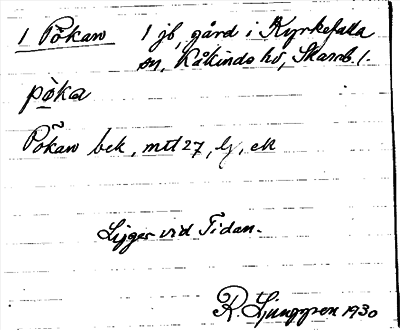 1 Pökan 1 jb, gård i Kyrkefalla
sn, Kåkinds hd, Skarab. l.
pöka
Pökan bek, mtl 27, Lj, ek
Ligger vid Tidan.
R. Ljunggren 1930